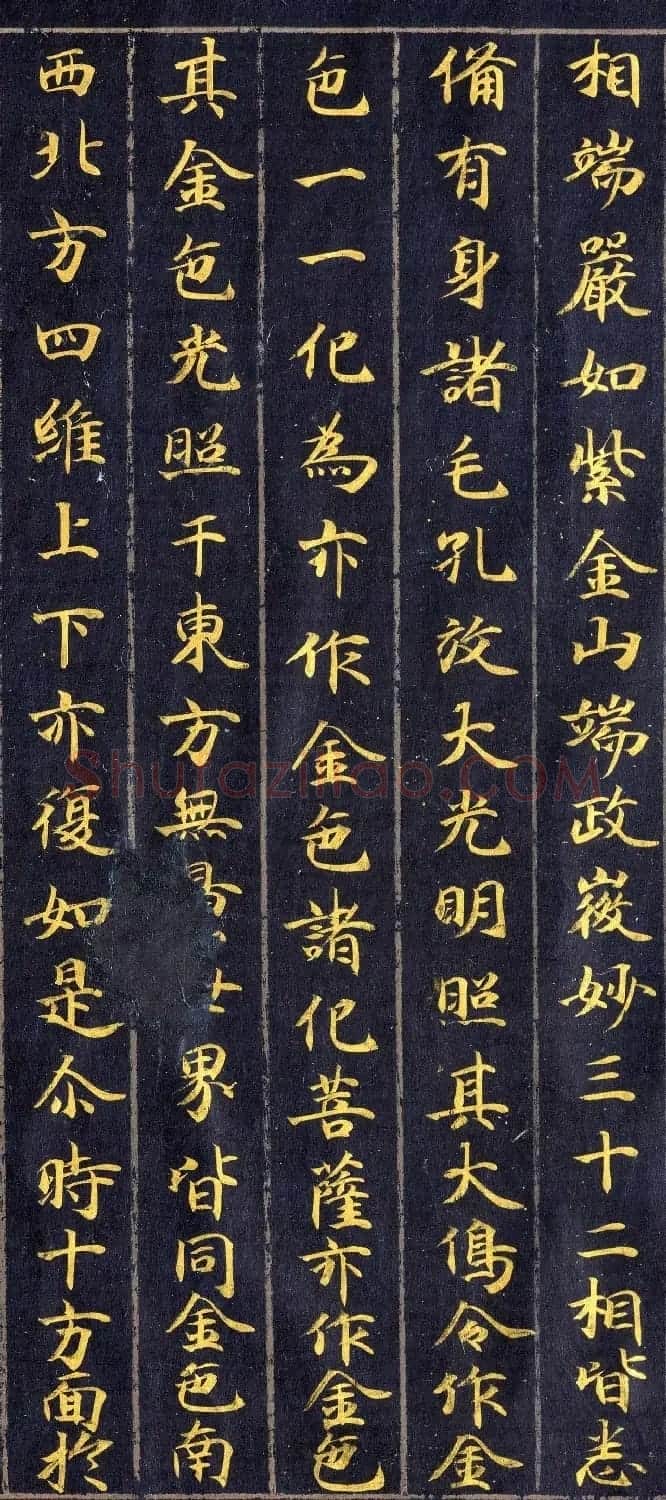 相端嚴如紫金山端政妙三十二相皆悉
備有身諸毛孔放大光明照其大令作金
色一一化為亦作金色諸化菩薩亦作金色
其金色光照于東方無界皆同金色南
西北方四維上下亦復如是尒時十方面於
Shufaziliao.COM